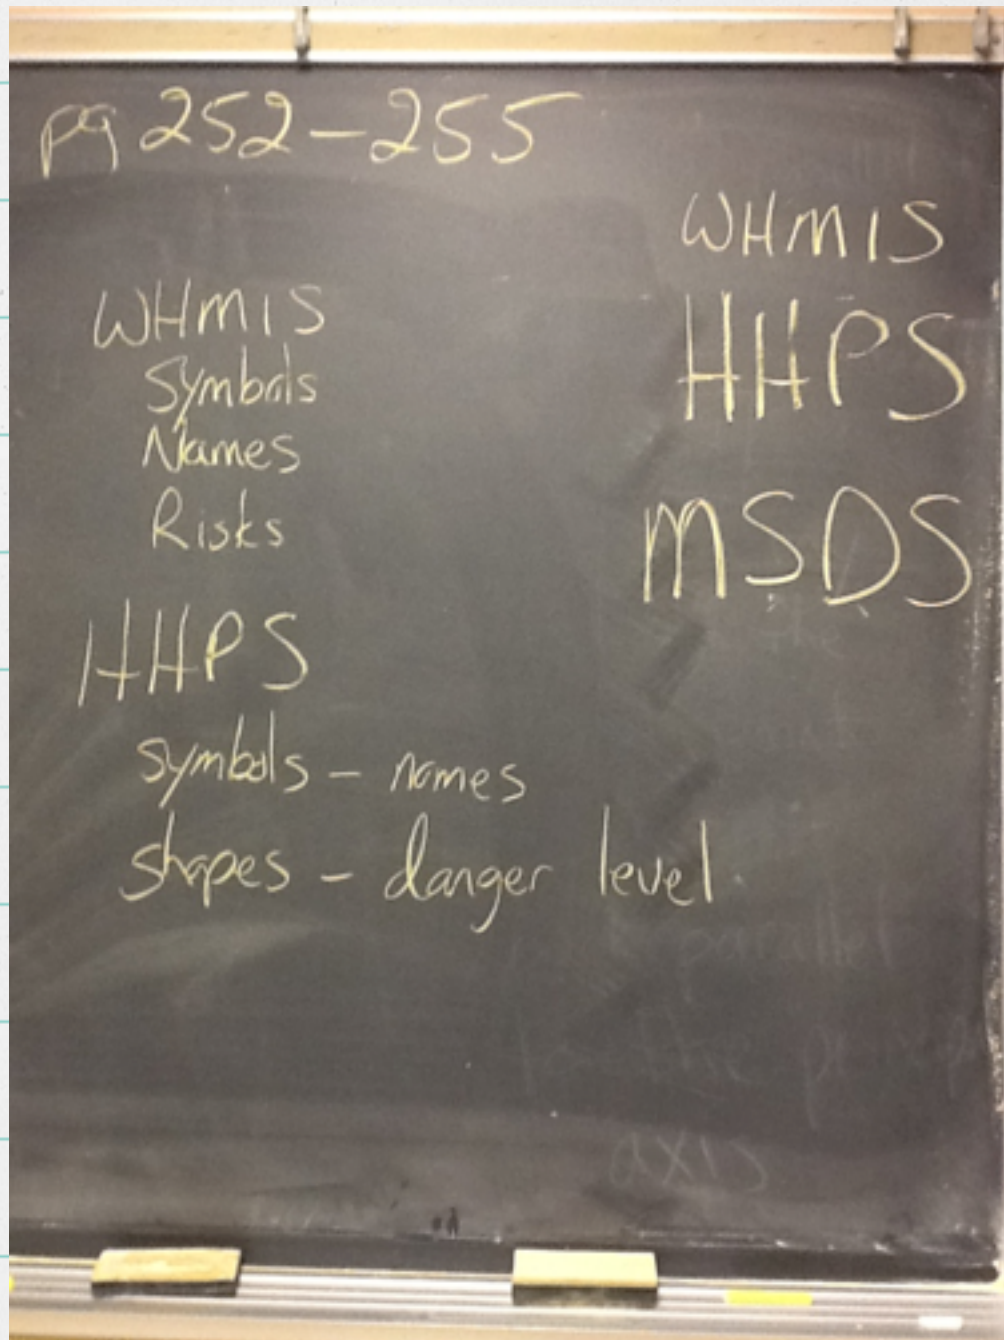 pg 252-255
WHMIS
Symbols
Names
Risks
HHPS
symbols - names
shapes - danger level
WHMIS
HHPS
MSDS
parallel
axis